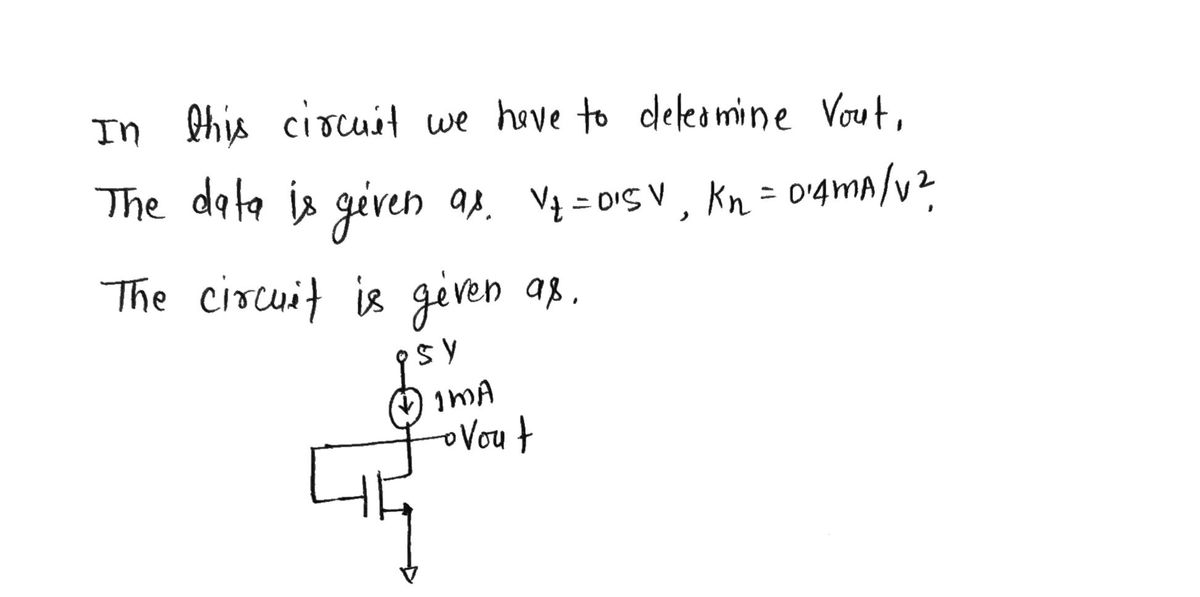 In this circuit we have to determine Vout.
The data is given as. Vt = 0.5 V, Kn = 0.4 mA/V².
The circuit is given as.
5 V
1mA
Vout